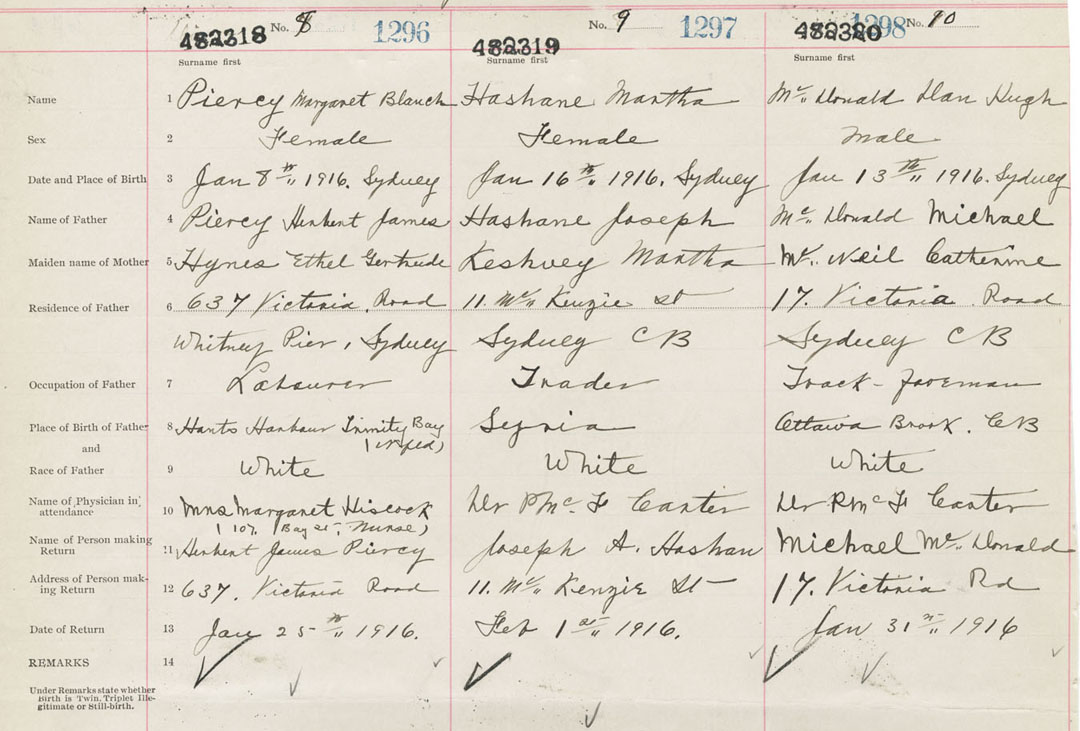 No. 8 1296 No. 9 1297 No. 10 1298
482318 482319 482320
Surname first Surname first Surname first
Name 1 Piercy Margaret Blanch Hashane Martha Mc Donald Dan Hugh
Sex 2 Female Female Male
Date and Place of Birth 3 Jan 8th 1916. Sydney Jan 16th 1916. Sydney Jan 13th 1916. Sydney
Name of Father 4 Piercy Herbert James Hashane Joseph Mc Donald Michael
Maiden name of Mother 5 Hynes Ethel Gertrude Martha Mc Neil Catherine
Residence of Father 6 637 Victoria Road 11. Mc Kenzie St 17. Victoria Road
Whitney Pier, Sydney Sydney CB Sydney CB
Occupation of Father 7 Labourer Trader Track-foreman
Place of Birth of Father 8 Hants Harbour Trinity Bay Syria Ottawa Brook. CB
and (Nfld)
Race of Father 9 White White White
Name of Physician in attendance 10 Mrs Margaret Hiscock Dr Mc F Carter Dr R Mc F Carter
(107 Bay St, Nurse)
Name of Person making Return 11 Herbert James Piercy Joseph A. Hashan Michael Mc Donald
Address of Person mak-
ing Return 12 637. Victoria Road 11. Mc Kenzie St 17. Victoria Rd
Date of Return 13 Jan 25th 1916. Feb 1st 1916. Jan 31st 1916
REMARKS 14
Under Remarks state whether
Birth is Twin, Triplet Ille-
gitimate or Still-birth.